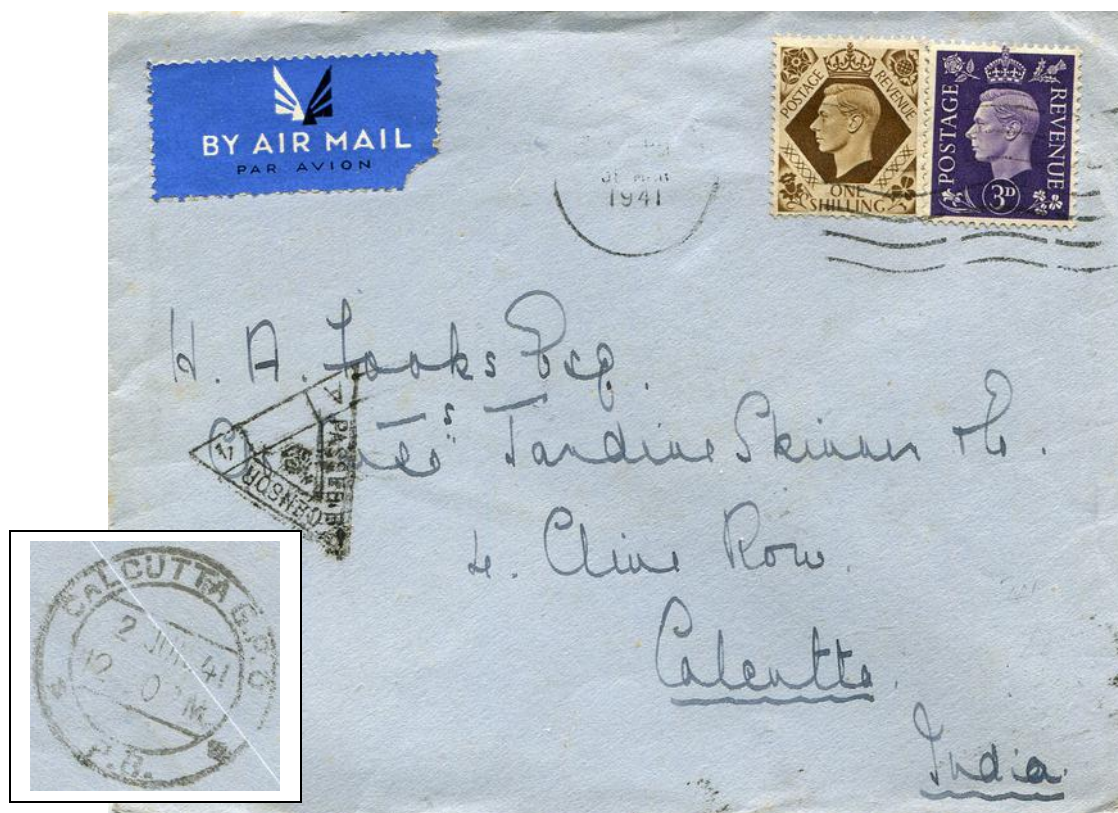 BY AIR MAIL
PAR AVION
1941
POSTAGE REVENUE
ONE SHILLING
POSTAGE REVENUE
3D
H. A. Fooks Esq.
Jardine Skinner & Co.
4. Clive Row.
Calcutta.
India.
PASSED
CENSOR
CALCUTTA G.P.O
2 41
M.